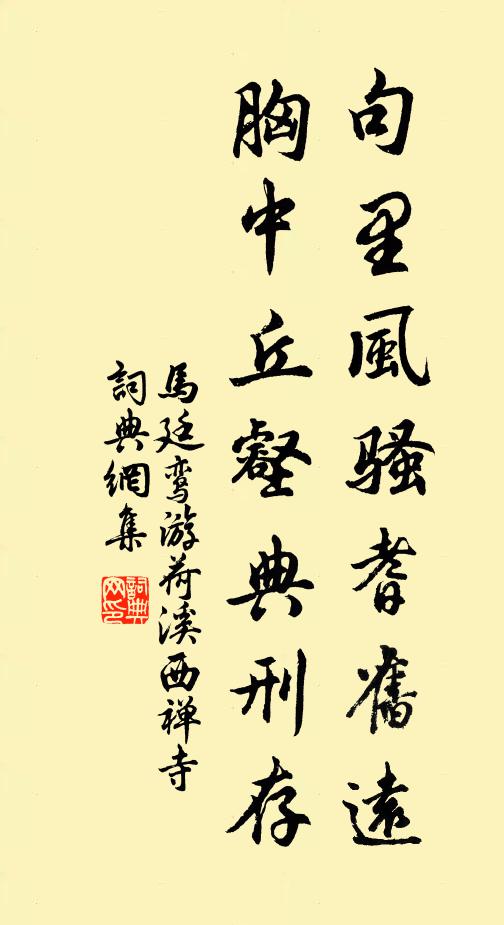 句里風騷耆舊遠
胸中丘壑典刑存
馬廷鸾游荷溪西禅寺
詞典網集
詞典
网印